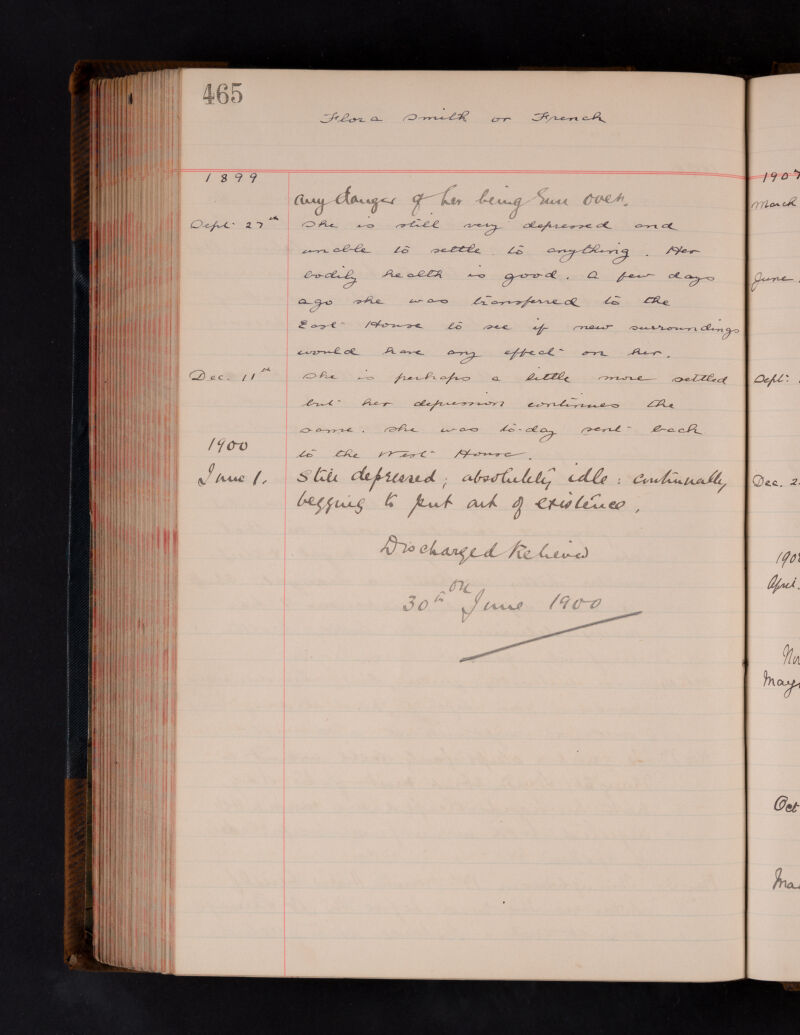 465
Flora Smith or French
1899
any danger of her being run over.
Sept. 27th She is still very depressed and
unable to settle to anything. Her
bodily health is good. A few days
ago she was transferred to the
East House to see if new surroundings
would have any effect on her.
Dec. 11th She is perhaps a little more settled
but her depression continues the
same. She was to-day sent back
1900
to the West House.
June 1. Still depressed; absolutely idle: continually
begging to put out of existence,
Discharged Relieved
on
30th June 1900
1907
March
June
Sept.
Dec. 2
April.
May
Oct